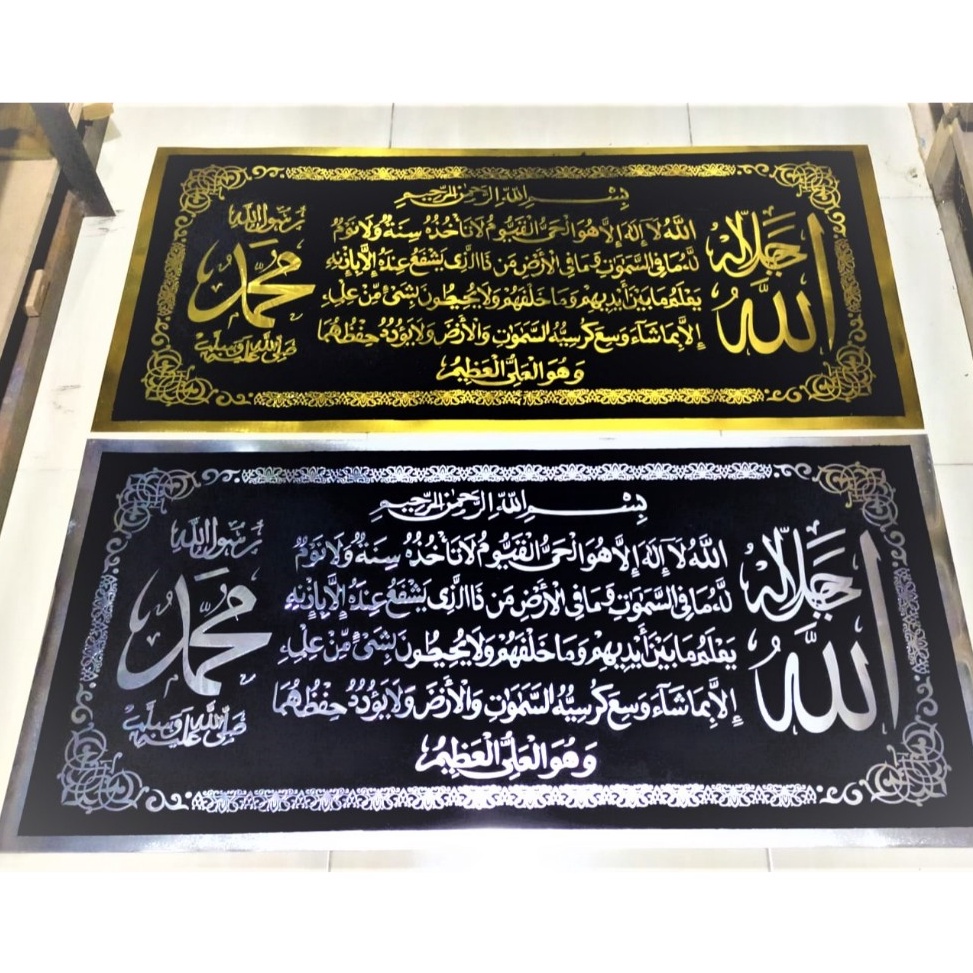 بِسْمِ اللَّهِ الرَّحْمَٰنِ الرَّحِيمِ
اللَّهُ لَا إِلَٰهَ إِلَّا هُوَ الْحَيُّ الْقَيُّومُ لَا تَأْخُذُهُ سِنَةٌ وَلَا نَوْمٌ
لَهُ مَا فِي السَّمَٰوَٰتِ وَمَا فِي الْأَرْضِ مَن ذَا الَّذِي يَشْفَعُ عِندَهُ إِلَّا بِإِذْنِهِ
يَعْلَمُ مَا بَيْنَ أَيْدِيهِمْ وَمَا خَلْفَهُمْ وَلَا يُحِيطُونَ بِشَيْءٍ مِّنْ عِلْمِهِ
إِلَّا بِمَا شَاءَ وَسِعَ كُرْسِيُّهُ السَّمَٰوَٰتِ وَالْأَرْضَ وَلَا يَئُودُهُ حِفْظُهُمَا
وَهُوَ الْعَلِيُّ الْعَظِيمُ
اللَّه
جَلَّ جَلَالُه
مُحَمَّد
رَسُولُ اللَّه
صَلَّى اللَّهُ عَلَيْهِ وَسَلَّمَ
بِسْمِ اللَّهِ الرَّحْمَٰنِ الرَّحِيمِ
اللَّهُ لَا إِلَٰهَ إِلَّا هُوَ الْحَيُّ الْقَيُّومُ لَا تَأْخُذُهُ سِنَةٌ وَلَا نَوْمٌ
لَهُ مَا فِي السَّمَٰوَٰتِ وَمَا فِي الْأَرْضِ مَن ذَا الَّذِي يَشْفَعُ عِندَهُ إِلَّا بِإِذْنِهِ
يَعْلَمُ مَا بَيْنَ أَيْدِيهِمْ وَمَا خَلْفَهُمْ وَلَا يُحِيطُونَ بِشَيْءٍ مِّنْ عِلْمِهِ
إِلَّا بِمَا شَاءَ وَسِعَ كُرْسِيُّهُ السَّمَٰوَٰتِ وَالْأَرْضَ وَلَا يَئُودُهُ حِفْظُهُمَا
وَهُوَ الْعَلِيُّ الْعَظِيمُ
اللَّه
جَلَّ جَلَالُه
مُحَمَّد
رَسُولُ اللَّه
صَلَّى اللَّهُ عَلَيْهِ وَسَلَّمَ